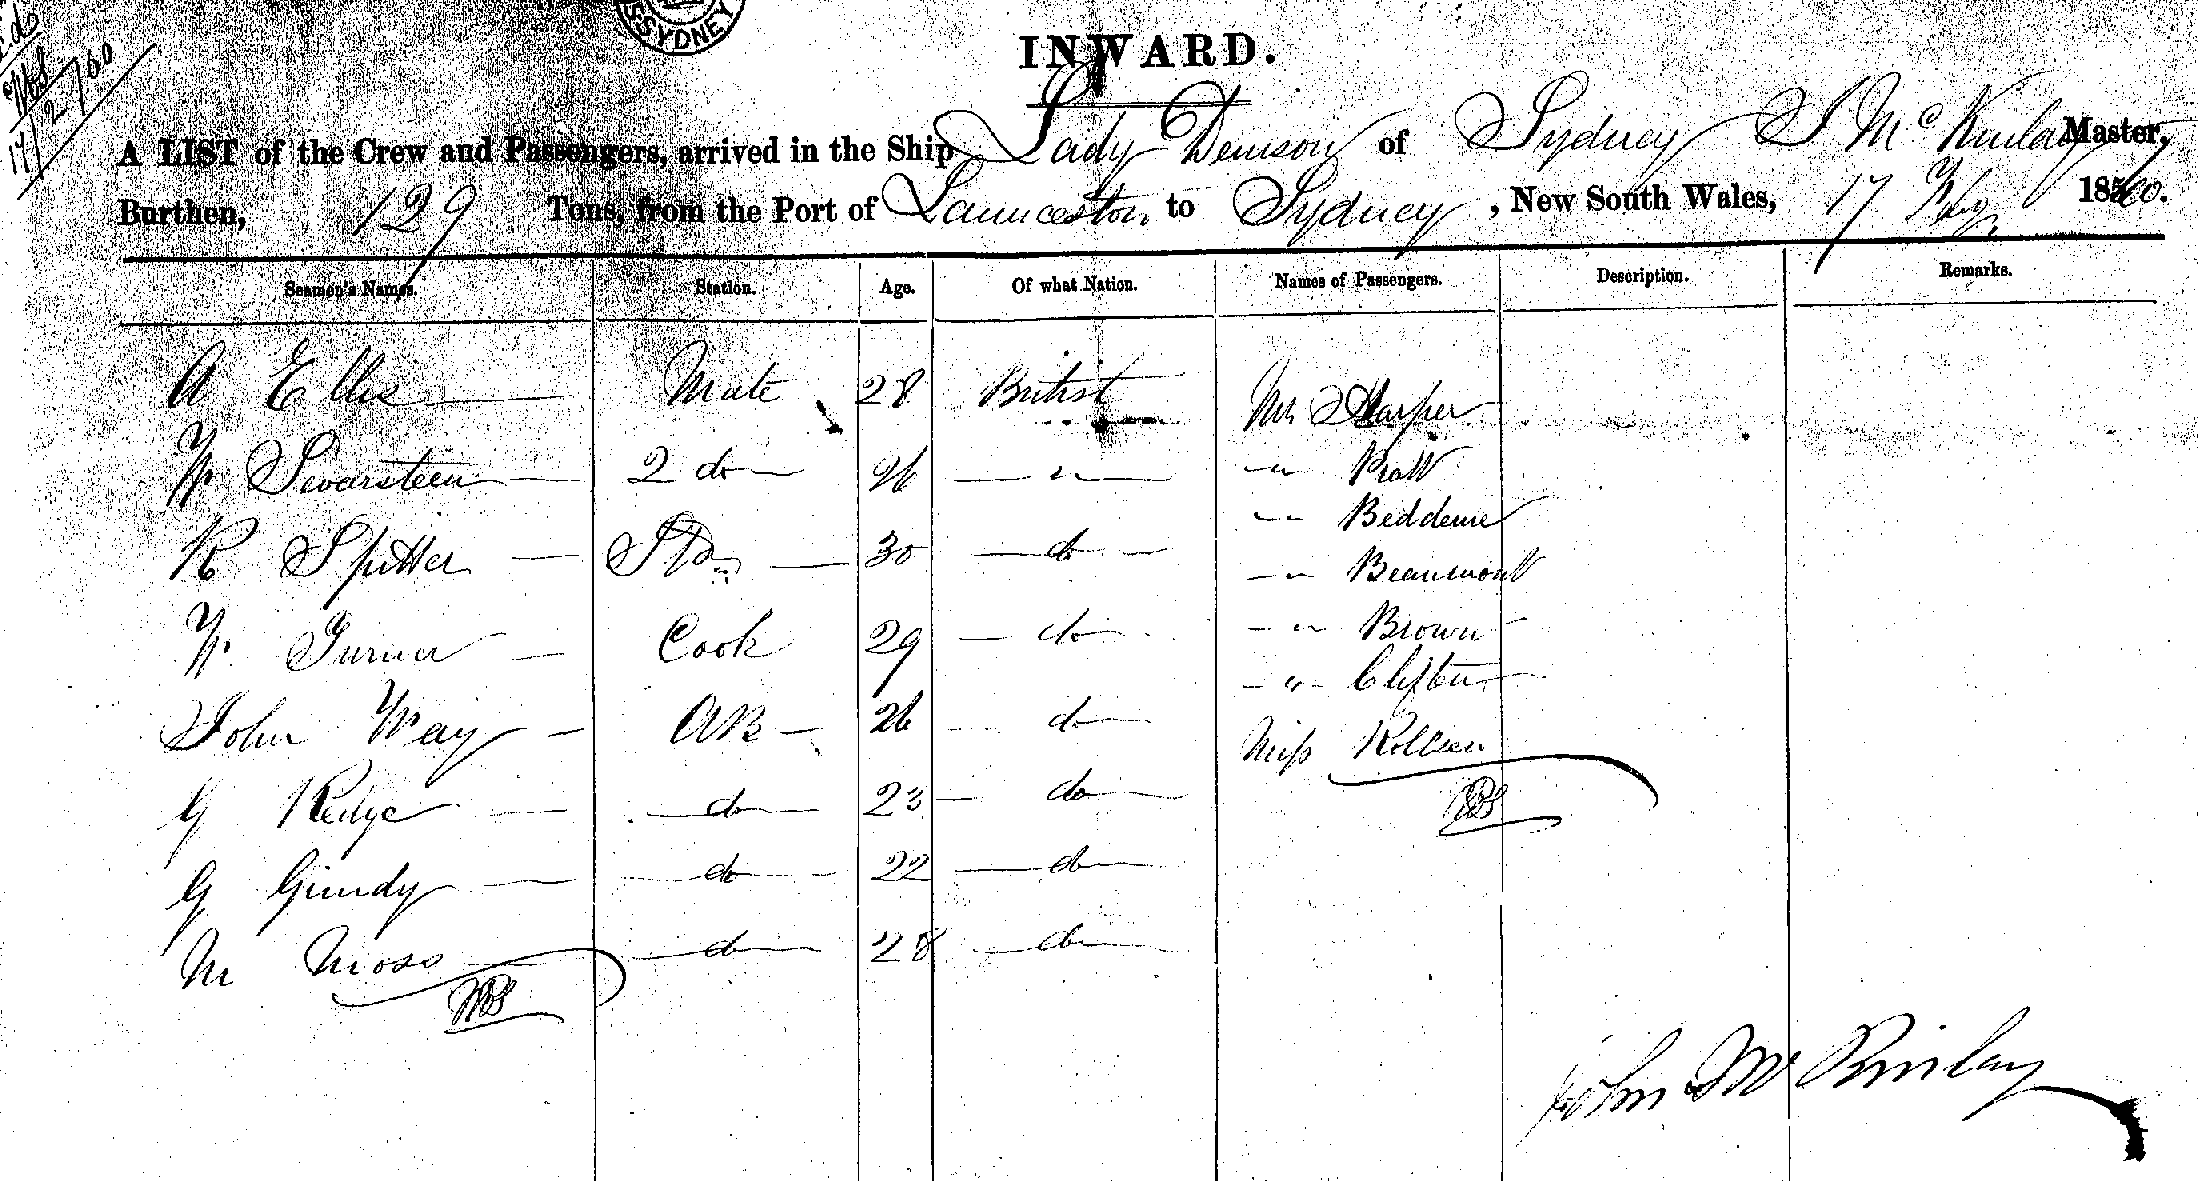 SYDNEY
17/2/60
INWARD.
A LIST of the Crew and Passengers, arrived in the Ship Lady Denison of Sydney J McKinlay Master,
Burthen, 129 Tons, from the Port of Launceston to Sydney, New South Wales, 17 Feby 1860.
Seamen's Names. Station. Age. Of what Nation. Names of Passengers. Description. Remarks.
A Ellis Mate 28 British Mr Harper
2 do 26 " " Pratt
R Spitter Std 30 do " Beddeme
" Beaumont
W Turner Cook 29 do " Brown
" Clifton
John Way AB 26 do Miss
G Kedge do 23 do
G Grundy do 22 do
M Moss do 28 do
John McKinlay